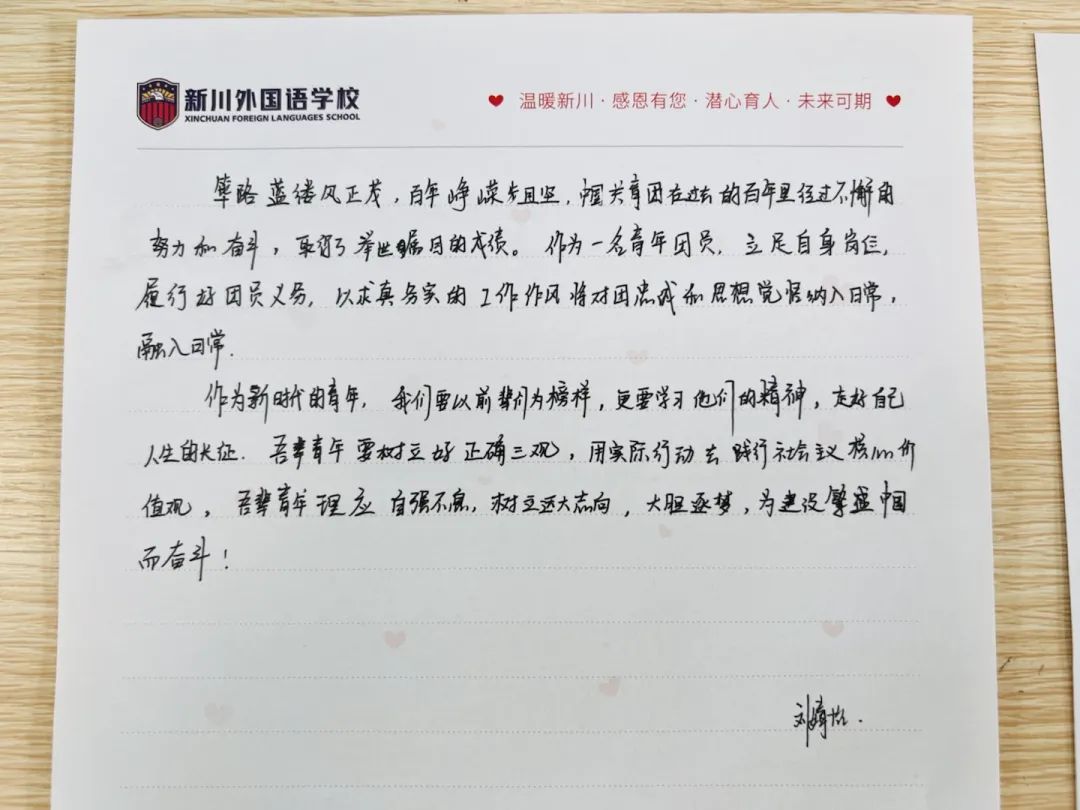 新川外国语学校
XINCHUAN FOREIGN LANGUAGES SCHOOL
温暖新川·感恩有您·潜心育人·未来可期
筚路蓝缕风正茂，百年峥嵘步且坚，中国共青团在过去的百年里经过不懈的
努力和奋斗，取得了举世瞩目的成绩。作为一名青年团员，立足自身岗位，
履行好团员义务，以求真务实的工作作风将对团忠诚和思想觉悟纳入日常，
融入日常.
作为新时代的青年，我们要以前辈们为榜样，更要学习他们的精神，走好自己
人生的长征．吾辈青年要树立好正确三观，用实际行动去践行社会主义核心价
值观，吾辈青年理应自强不息，树立远大志向，大胆逐梦，为建设繁盛中国
而奋斗！
刘婧